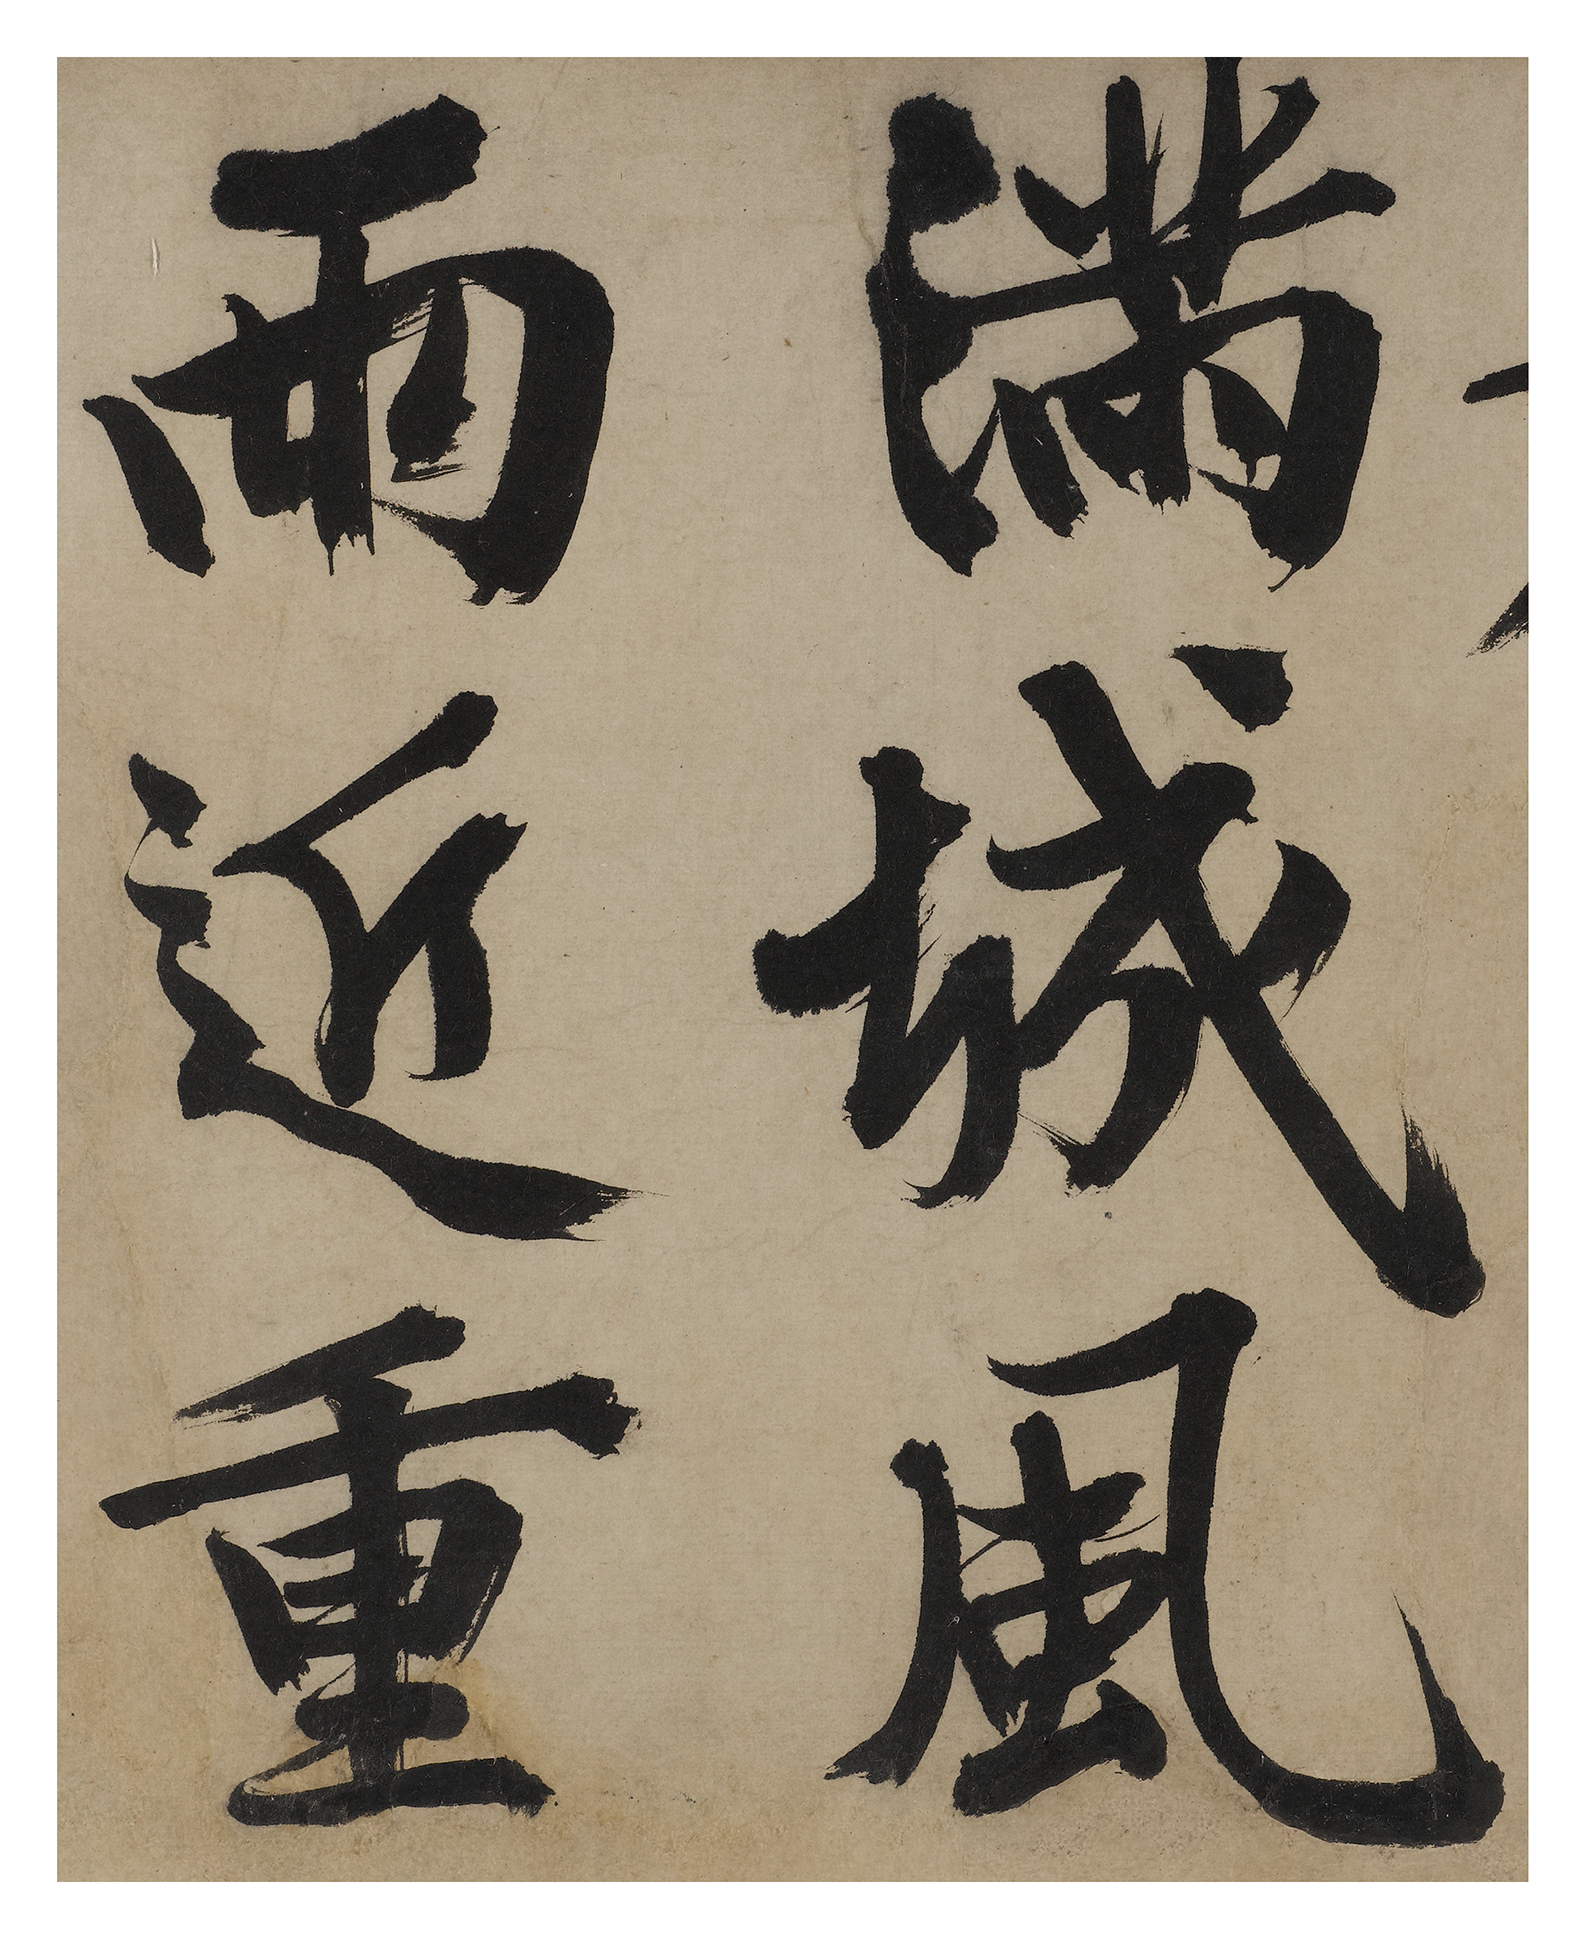 滿城風
雨近重